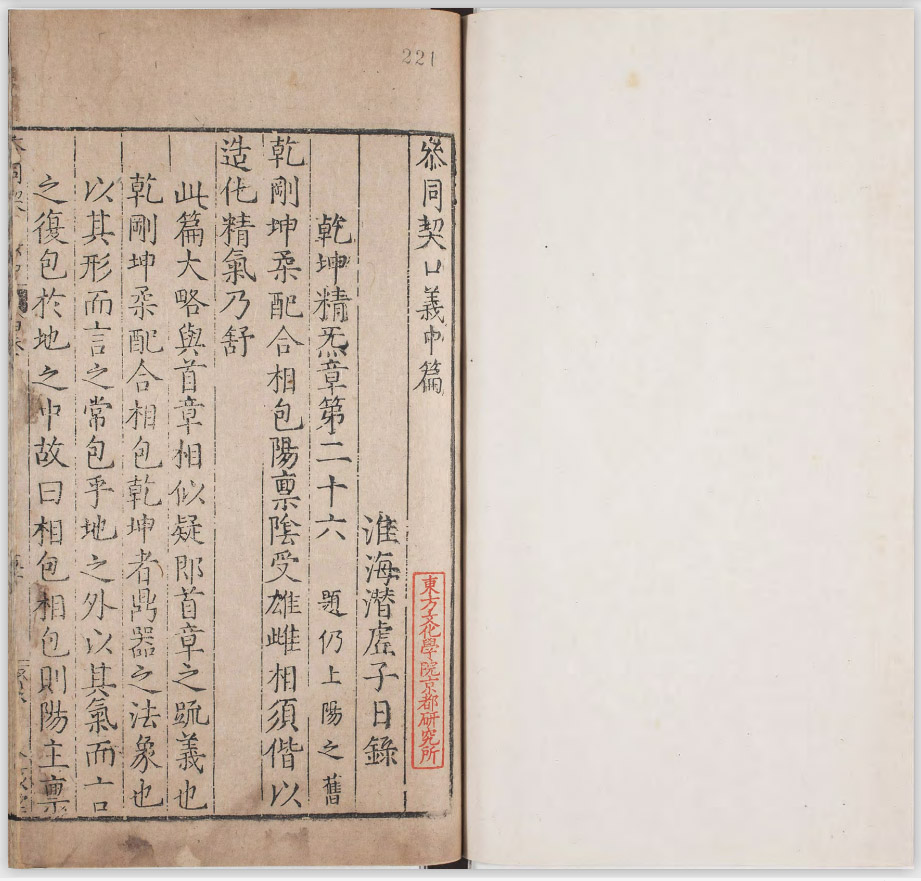 221
叅同契口義中篇
東方文化學院京都研究所
淮海潛虛子日錄
乾坤精炁章第二十六 題仍上陽之舊
乾剛坤柔配合相包陽禀陰受雄雌相須偕以
造化精氣乃舒
此篇大略與首章相似疑即首章之䟽義也
乾剛坤柔配合相包乾坤者鼎器之法象也
以其形而言之常包乎地之外以其氣而言
之復包於地之中故曰相包相包則陽主禀